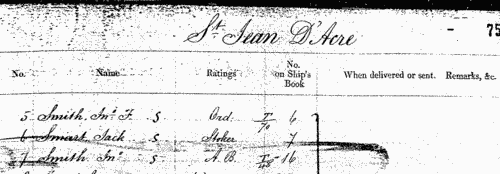 St Jean D'Acre
- 75
No. Name Ratings No. on Ship's Book When delivered or sent. Remarks, &c.
5 Smith, Jno F. S Ord. 6
6 Smart, Jack S Stoker 7
7 Smith Jno S A.B. 16